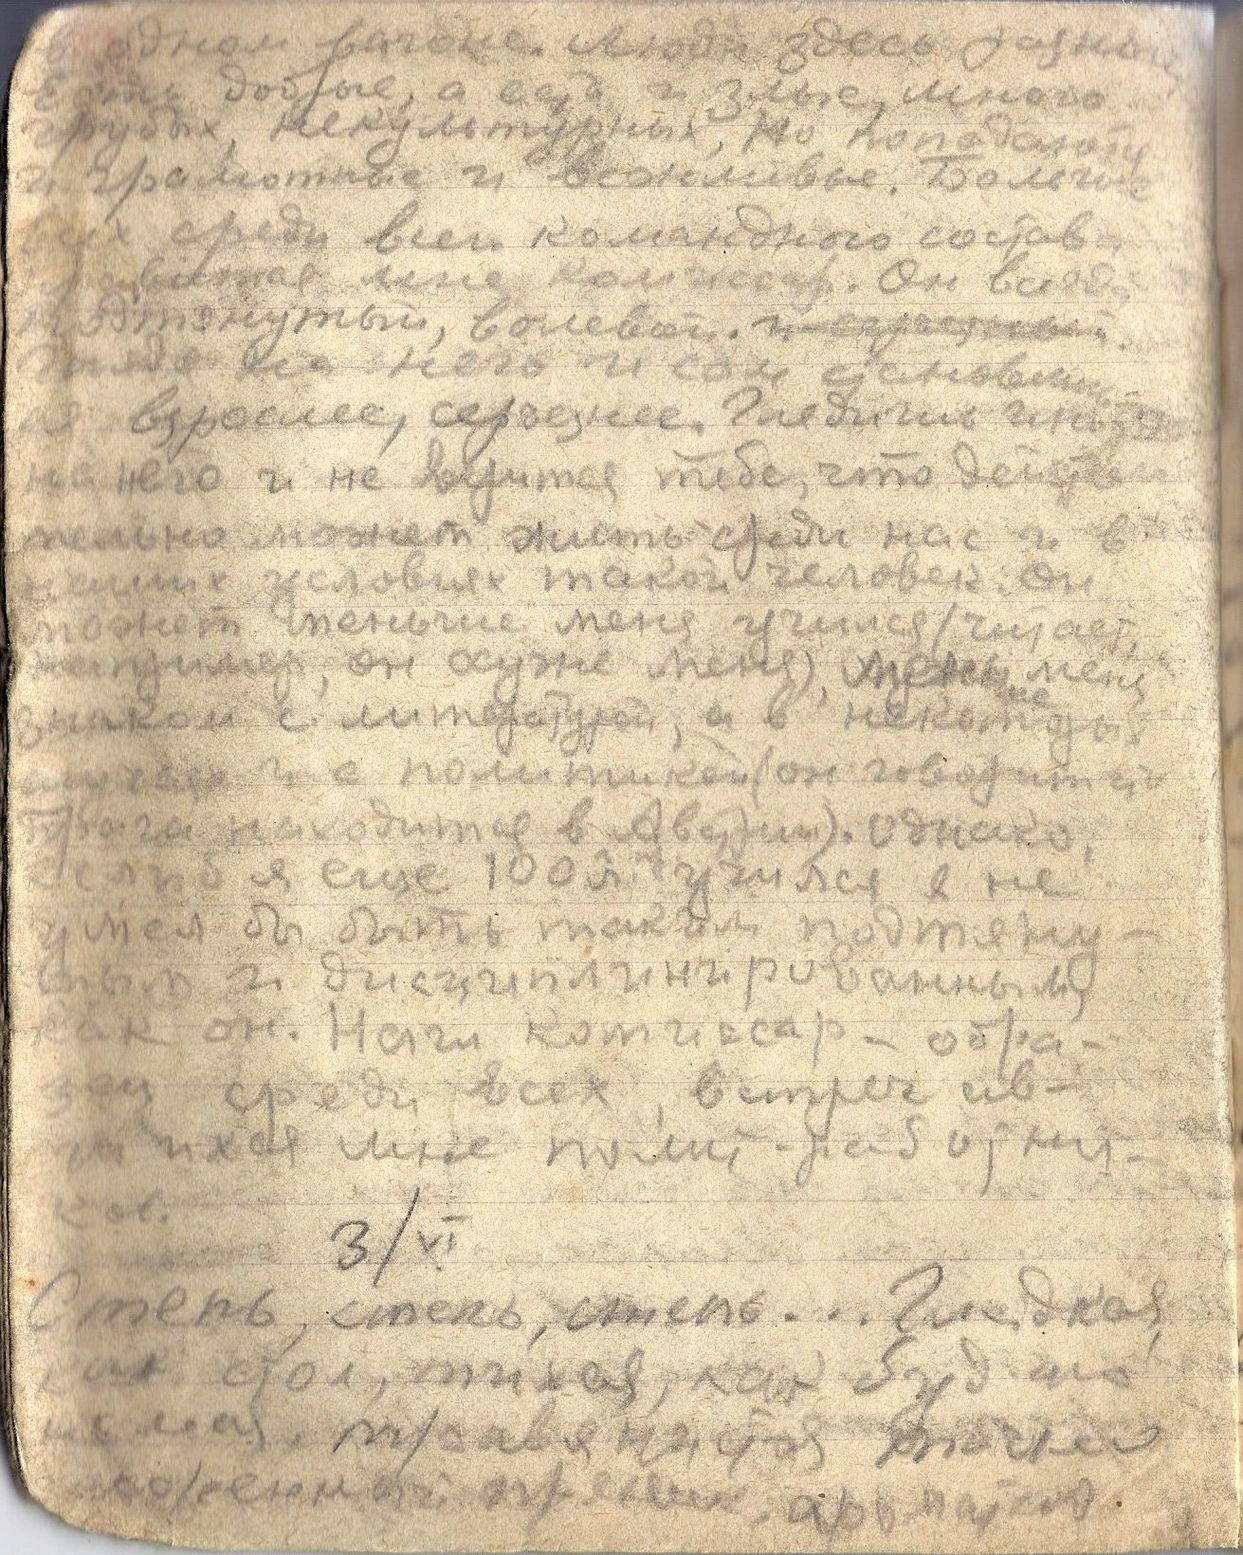 одном вагоне. Люди здесь разные
Есть добрые, а есть и злые, много
грубых, некультурных, но попадают
и грамотные и вежливые. Больше
всех среди всего командного состава
нравится мне комиссар. Он всегда
подтянутый, волевой.
Глядя на него и сам становишь
ся взрослее, серьезнее. Глядишь иногда
на него и не верится тебе, что действи
тельно может жить среди нас и в
наших условиях такой человек. Он
может меньше меня учился (читает,
например, он хуже меня), меньше меня
знаком с литературой, а в некоторых
случаях и с политикой (он говорит, что
Прага находится в Австрии). Однако,
если б я еще 100 лет учился я не
умел бы быть таким подтяну-
тым и дисциплинированным,
как он. Наш комиссар – обра-
зец среди всех, встречав-
шихся мне полит-работни-
ков.
3/VI
Степь, степь, степь... Гладкая,
как стол, тихая, как будто
немая. Травянистая